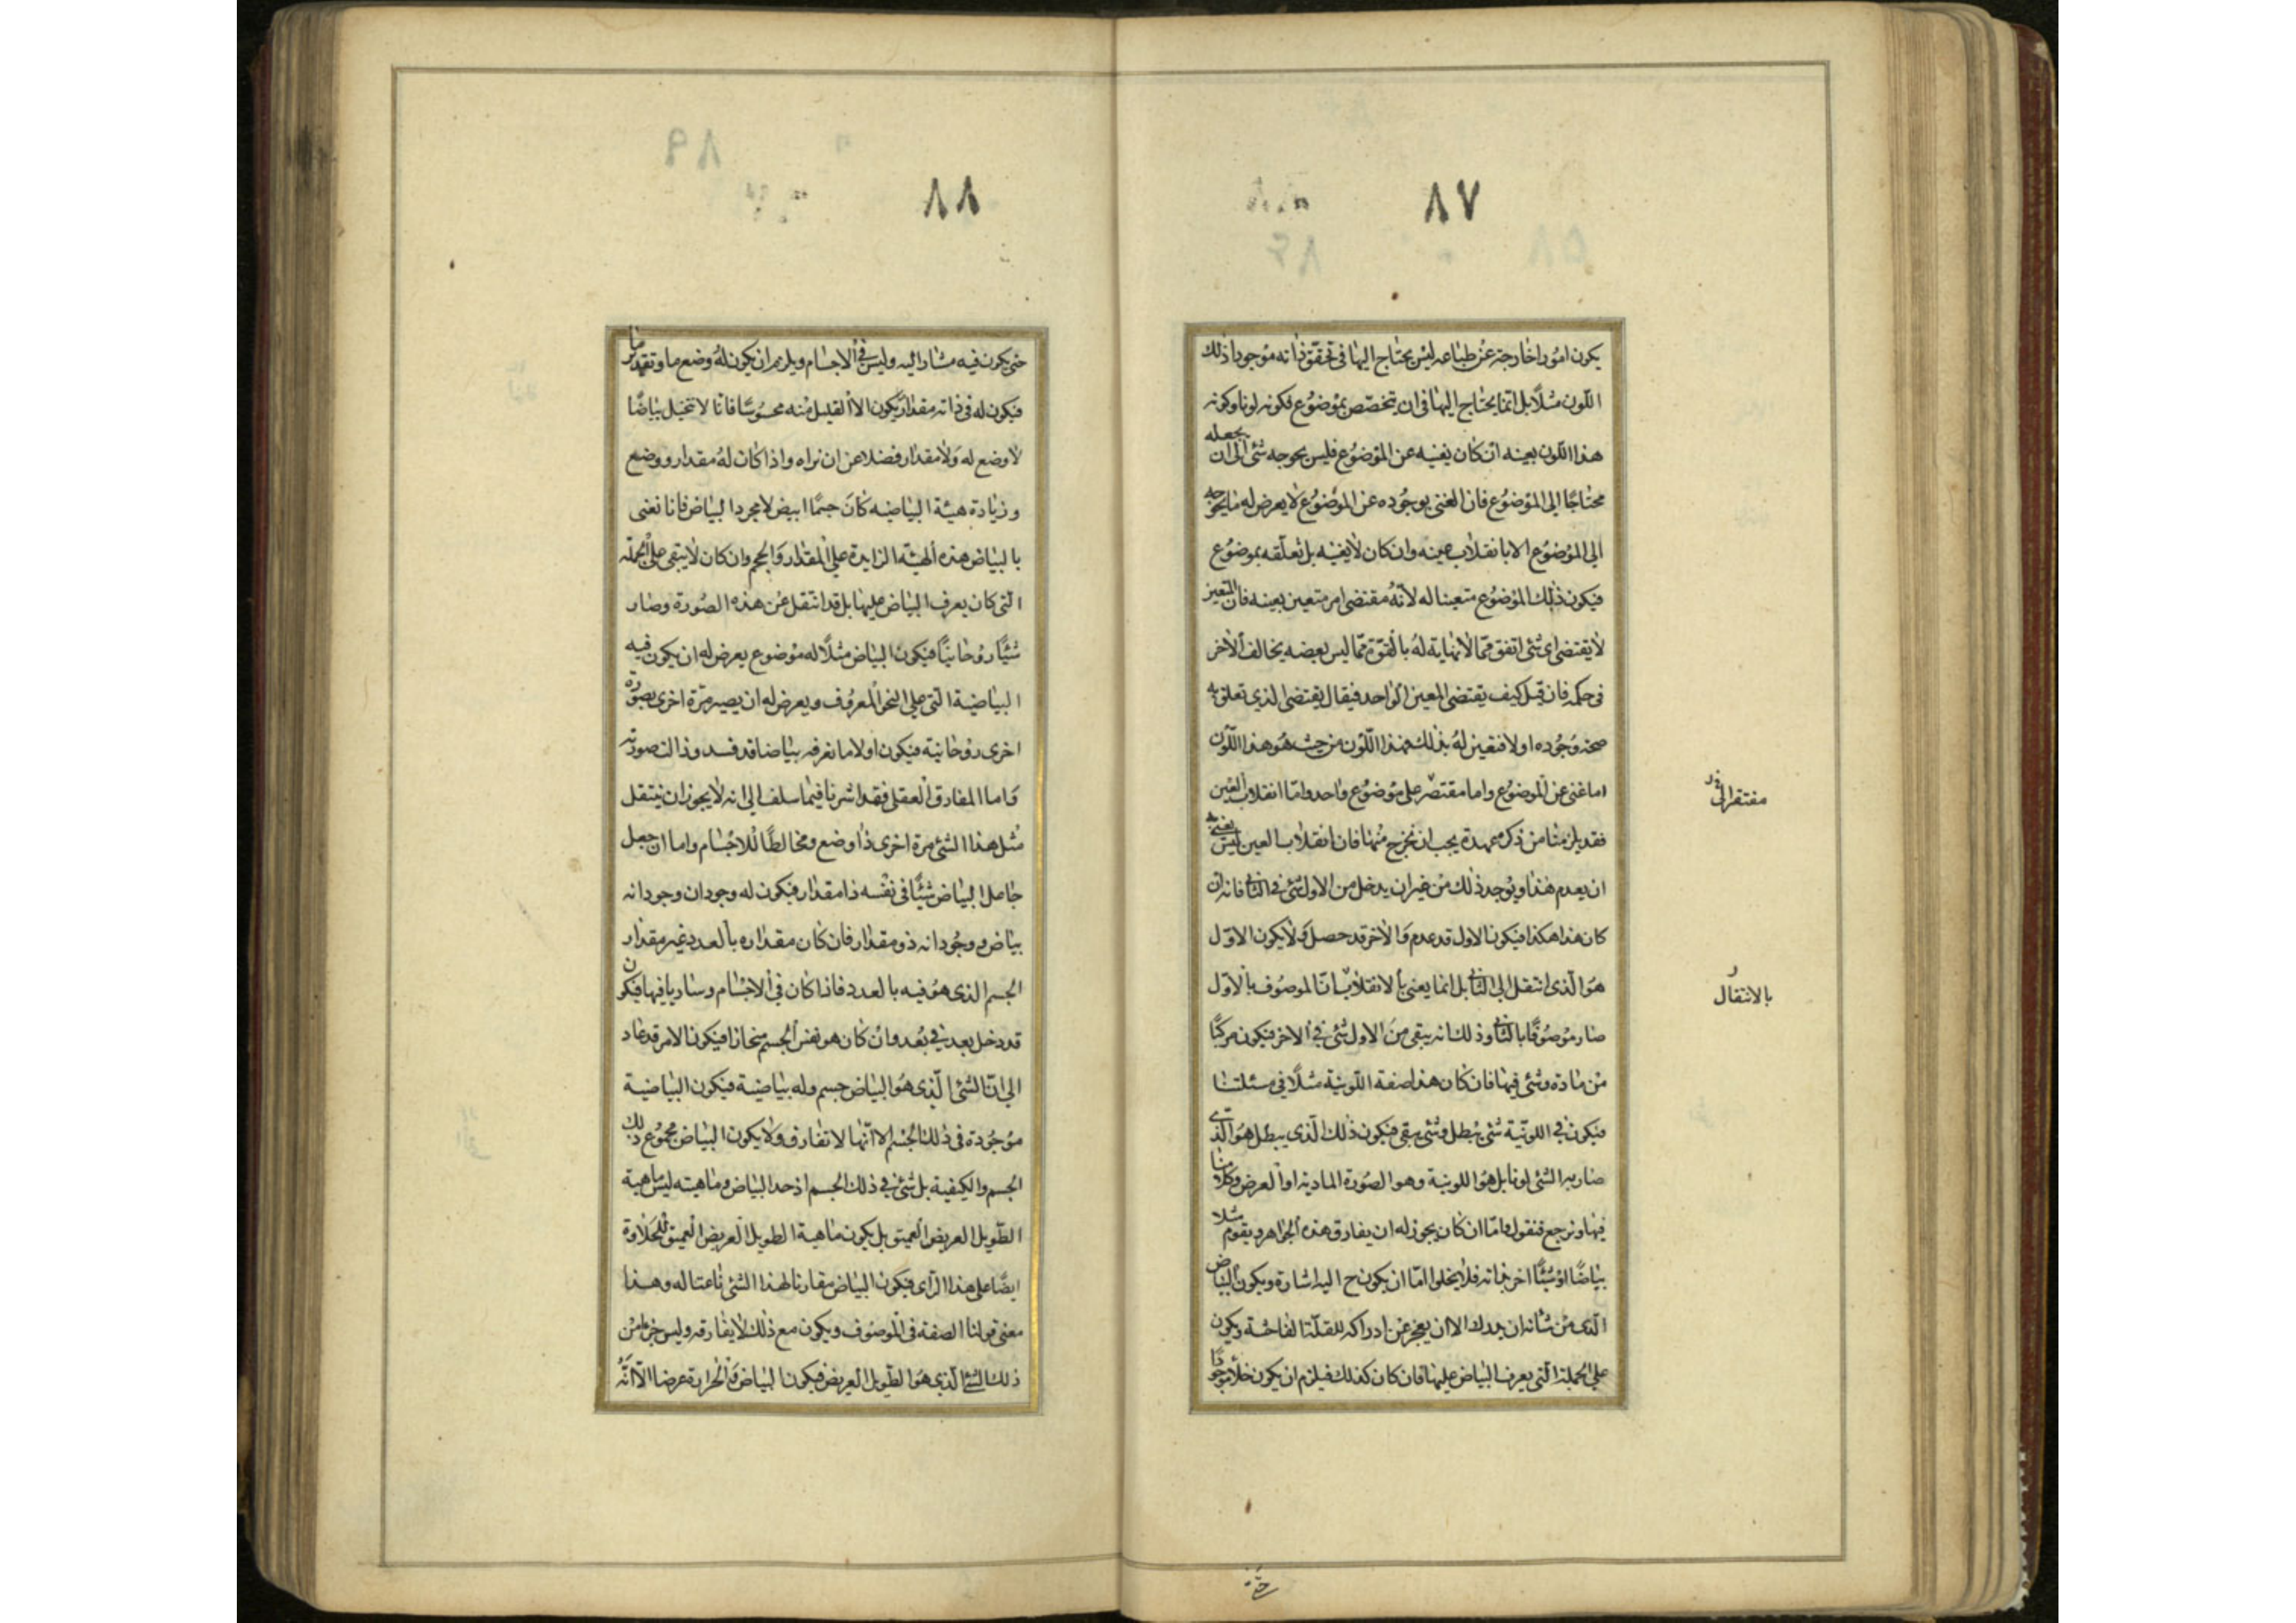 ٨٧
يكون امورا خارجة عن طباعه ليس يحتاج اليها فى تحقق ذاته موجودا ذلك
اللون مثلا بل انما يحتاج اليها فى ان يتخصص بموضوع فكونه لونا وكونه
هذا اللون بعينه ان كان يغنيه عن الموضوع فليس يحوجه شئ الى ان يجعله
محتاجا الى الموضوع فان الغنى بوجوده عن الموضوع لا يعرض له ما يحوجه
الى الموضوع الا بانقلاب عينه وان كان لا يغنيه بل تعلقه بموضوع
فيكون ذلك الموضوع متعينا له لانه مقتضى امر متعين بعينه فان المتعين
لا يقتضى اى شئ اتفق مما لا نهاية له بالقوة مما ليس بعضه يخالف الاخر
فى حكمه فان قيل كيف يقتضى المعين الواحد فيقال يقتضى الذى تعلق به
صحة وجوده اولا فتعين له بذلك فهذا اللون من حيث هو هذا اللون
اما غنى عن الموضوع واما مقتصر على موضوع واحد واما انقلاب العين
مفتقر الى
فقد يلزمنا من ذكره عهدة يجب ان نخرج منها فان انقلاب العين ليس يعنى به
ان يعدم هذا ويوجد ذلك من غير ان يدخل من الاول شئ فى الثانى فانه ان
كان هذا هكذا فيكون الاول قد عدم والاخر قد حصل ولا يكون الاول
هو الذى انتقل الى الثانى بل انما يعنى بالانقلاب ان الموصوف بالاول
بالانتقال
صار موصوفا بالثانى وذلك انه يبقى من الاول شئ فى الاخر فيكون مركبا
من مادة وشئ فيها فان كان هذا صفة اللونية مثلا فى مسئلتنا
فيكون فى اللونية شئ يبطل وشئ يبقى فيكون ذلك الذى يبطل هو الذى
صار به الشئ لونا بل هو اللونية وهو الصورة المادية او العرض وكلامنا
فيها ونرجع فنقول واما ان كان يجوز له ان يفارق هذه الجواهر ويقوم مثلا
بياضا او شيئا اخر بذاته فلا يخلوا اما ان يكون ح اليه اشارة ويكون البياض
الذى من شانه ان يدرك الا ان يعجز عن ادراكه للقلة الفاحشة ويكون
على الجملة التى يعرف البياض عليها فان كان كذلك فيلزم ان يكون خلأ موجودا
٨٨
حتى يكون فيه مشار اليه وليس فى الاجسام ويلزم ان يكون له وضع ما وتقدير ما
فيكون له فى ذاته مقدار يكون الا القليل منه محسوسا فانا لا نتخيل بياضا
لا وضع له ولا مقدار فضلا عن ان نراه واذا كان له مقدار ووضع
وزيادة هيئة البياضيه كان جسما ابيض لا مجرد البياض فانا نعنى
بالبياض هذه الهيئة الزايدة على المقدار والحجم وان كان لا يبقى على الجملة
التى كان يعرف البياض عليها بل قد انتقل عن هذه الصورة وصار
شيئا روحانيا فيكون البياض مثلا له موضوع يعرض له ان يكون فيه
البياضية التى على النحو المعروف ويعرض له ان يصير مرة اخرى بصورة
اخرى روحانية فيكون اولا ما نعرفه بياضا قد فسد وزالت صورته
واما المفارق العقلى فقد اشرنا فيما سلف الى انه لا يجوز ان ينتقل
مثل هذا الشئ مرة اخرى ذا وضع ومخالطا للاجسام واما ان جعل
جاعل البياض شيئا فى نفسه ذا مقدار فيكون له وجودان وجود انه
بياض ووجود انه ذو مقدار فان كان مقداره بالعدد غير مقدار
الجسم الذى هو فيه بالعدد فاذا كان فى الاجسام وساريا فيها فيكون
قد دخل بعد فى بعد وان كان هو نفس الجسم منحازا فيكون الامر قد عاد
الى ان الشئ الذى هو البياض جسم وله بياضية فيكون البياضية
موجودة فى ذلك الجسم الا انها لا تفارق ولا يكون البياض مجموع ذلك
الجسم والكيفية بل شئ فى ذلك الجسم اذ حد البياض وماهيته ليس ماهية
الطويل العريض العميق بل يكون ماهية الطويل العريض العميق للحلاوة
ايضا على هذا الرأى فيكون البياض مقارنا لهذا الشئ ناعتا له وهذا
معنى قولنا الصفة فى الموصوف ويكون مع ذلك لا يفارقه وليس جزءا من
ذلك الشئ الذى هو الطويل العريض فيكون البياض والحرارة عرضا الا انه